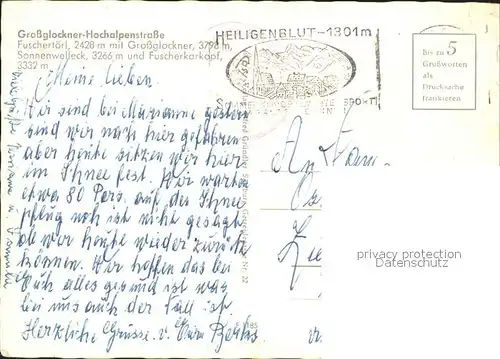 Großglockner-Hochalpenstraße
Fuschertörl, 2428 m mit Großglockner, 3798 m,
Sonnenwelleck, 3266 m und Fuscherkarkopf,
3332 m
HEILIGENBLUT-1301m
Bis zu 5
Grußworten
als
Drucksache
frankieren
Meine Lieben.
Wir sind bei Marianne gestern
sind wir nach hier gefahren
aber heute sitzen wir hier
im Schnee fest. Wir warten
etwa 80 Pers. auf den Schnee
pflug noch ist nicht gesagt
ob wir heute wieder zurück
können. Wir hoffen das bei
Euch alles gesund ist was
bei uns auch der Fall ist
Herzliche Grüsse. v.
An Fam.
privacy protection
Datenschutz